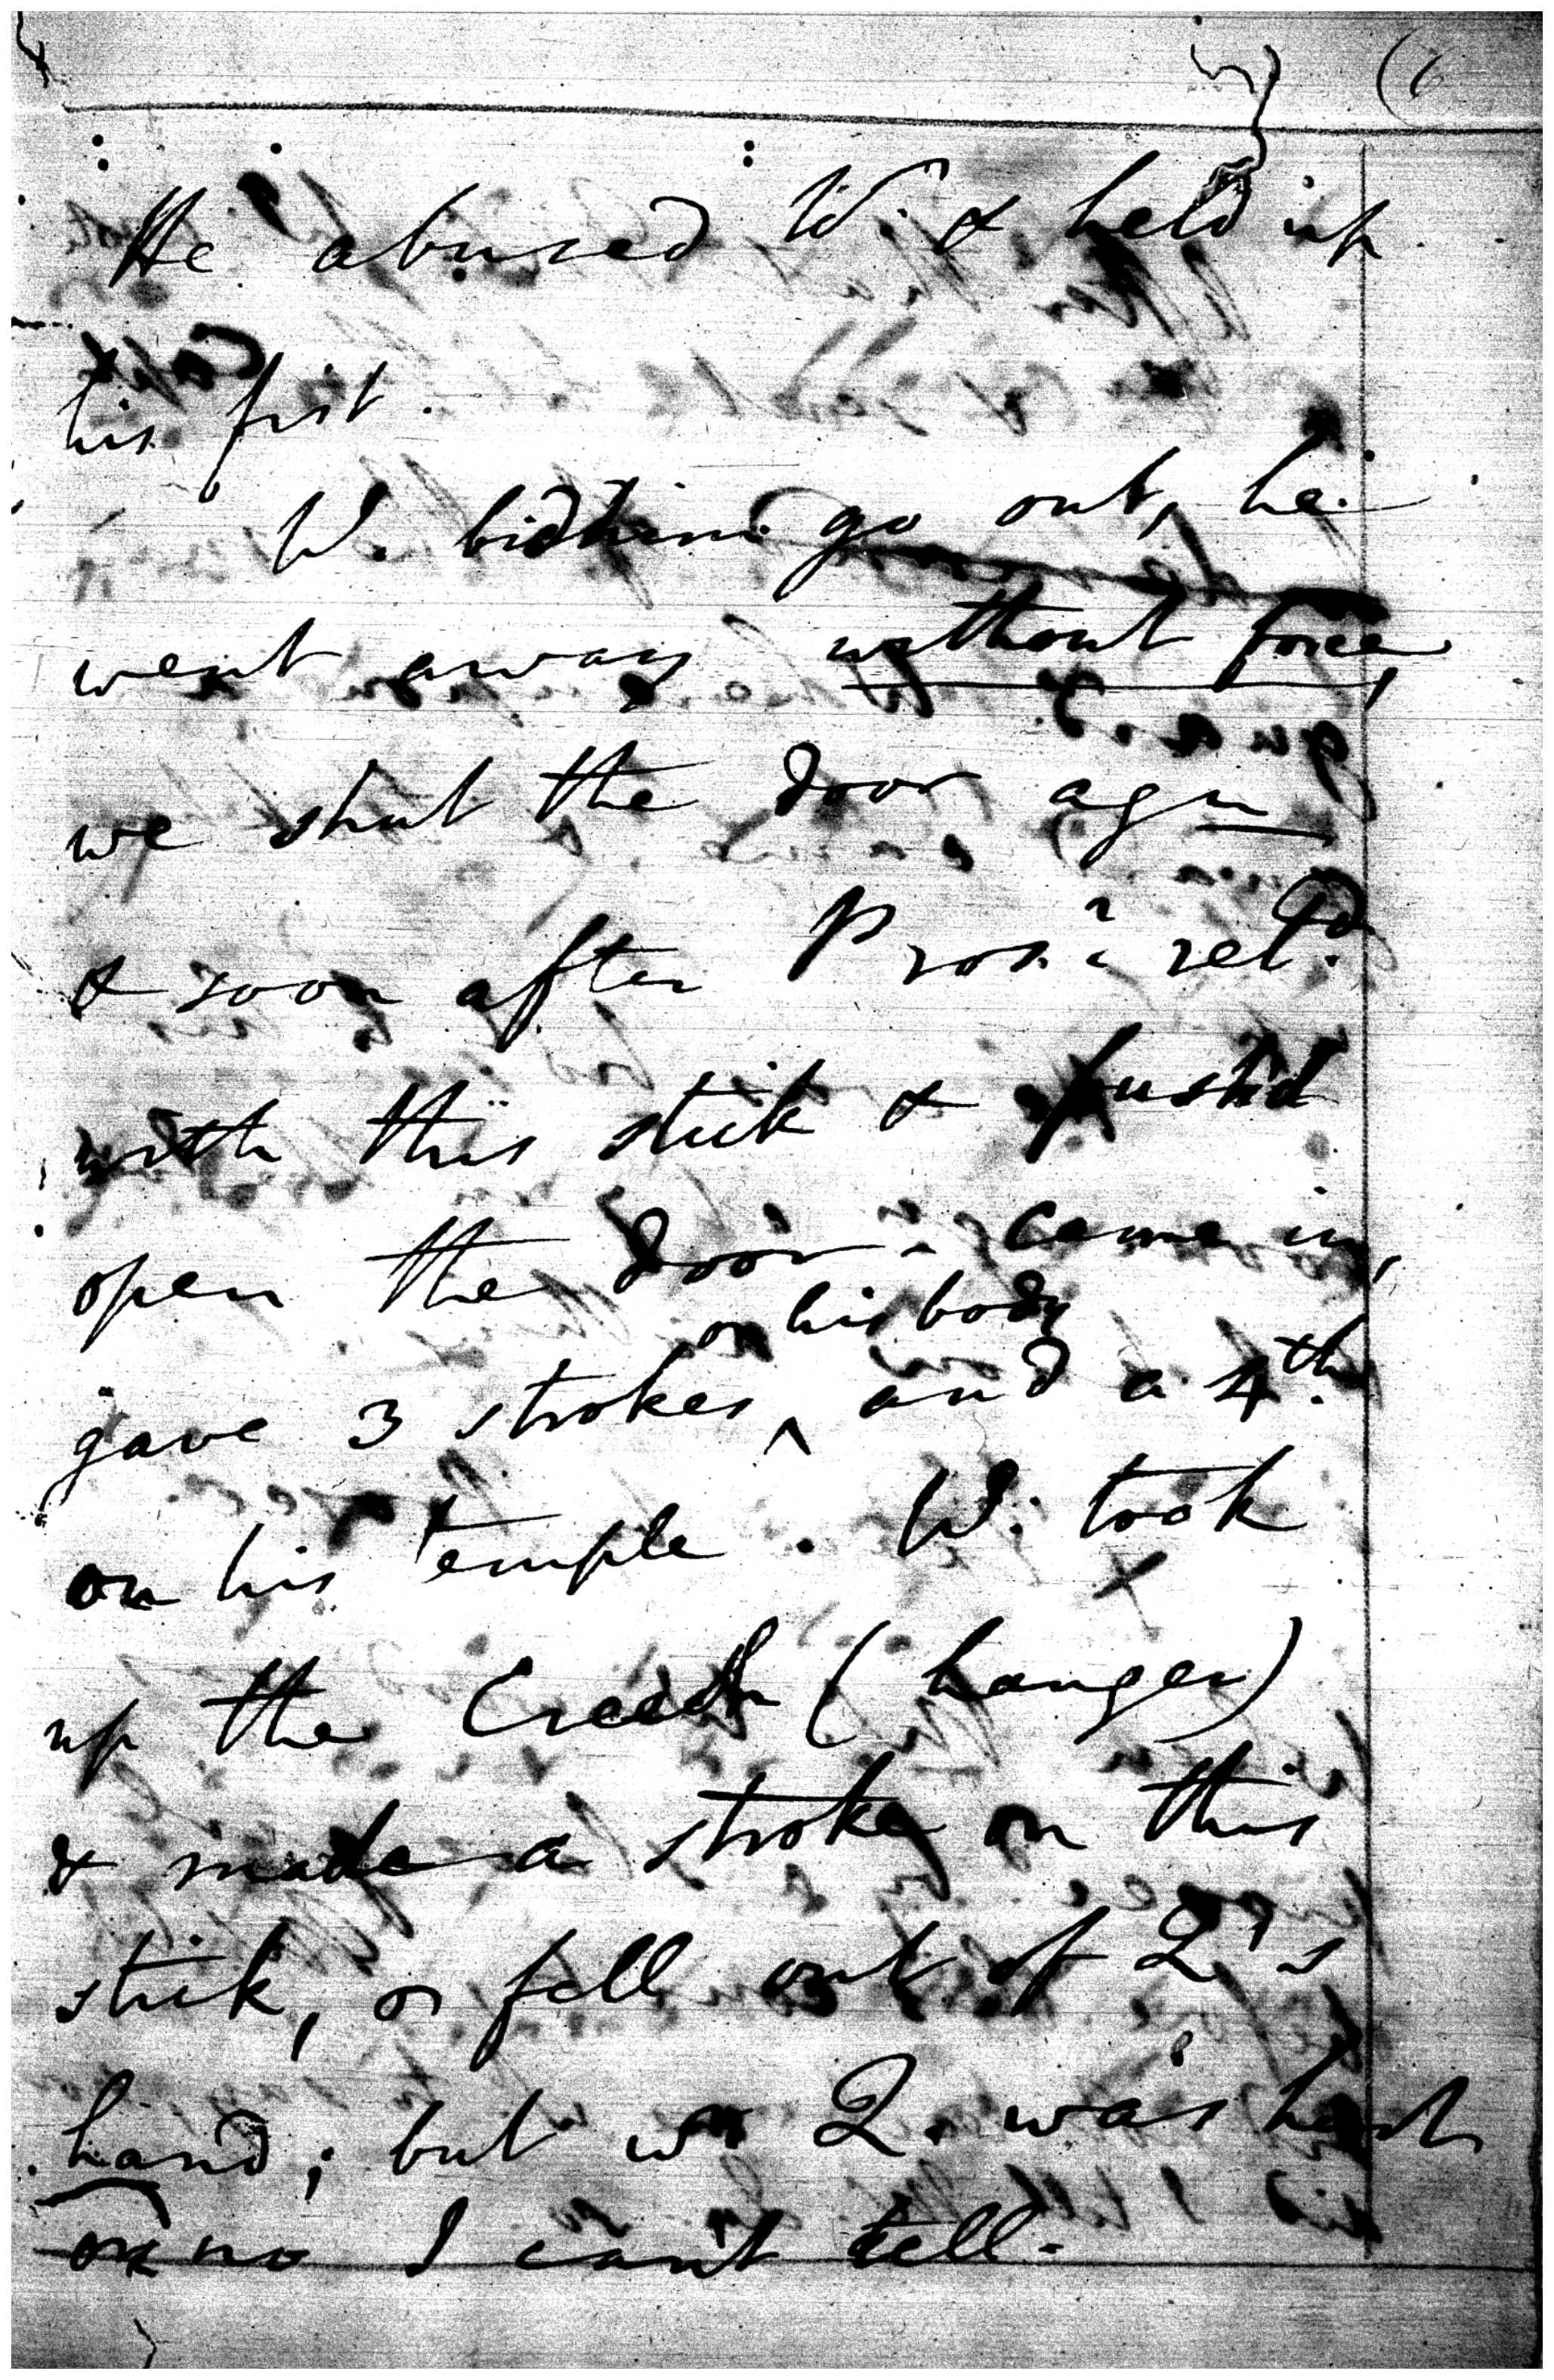 (6
He abused W. & held up
his fist.
W. bid him go out, he
went away without force,
we shut the door agn
& soon after Prosr retd
with this stick & push'd
open the door - came in,
on his body
gave 3 strokes ^ and a 4th
on his temple. W. took
up the Creech (hanger)
& made a stroke on this
stick, or fell out of Q's
hand; but wr Q. was hurt
or no I can't tell.